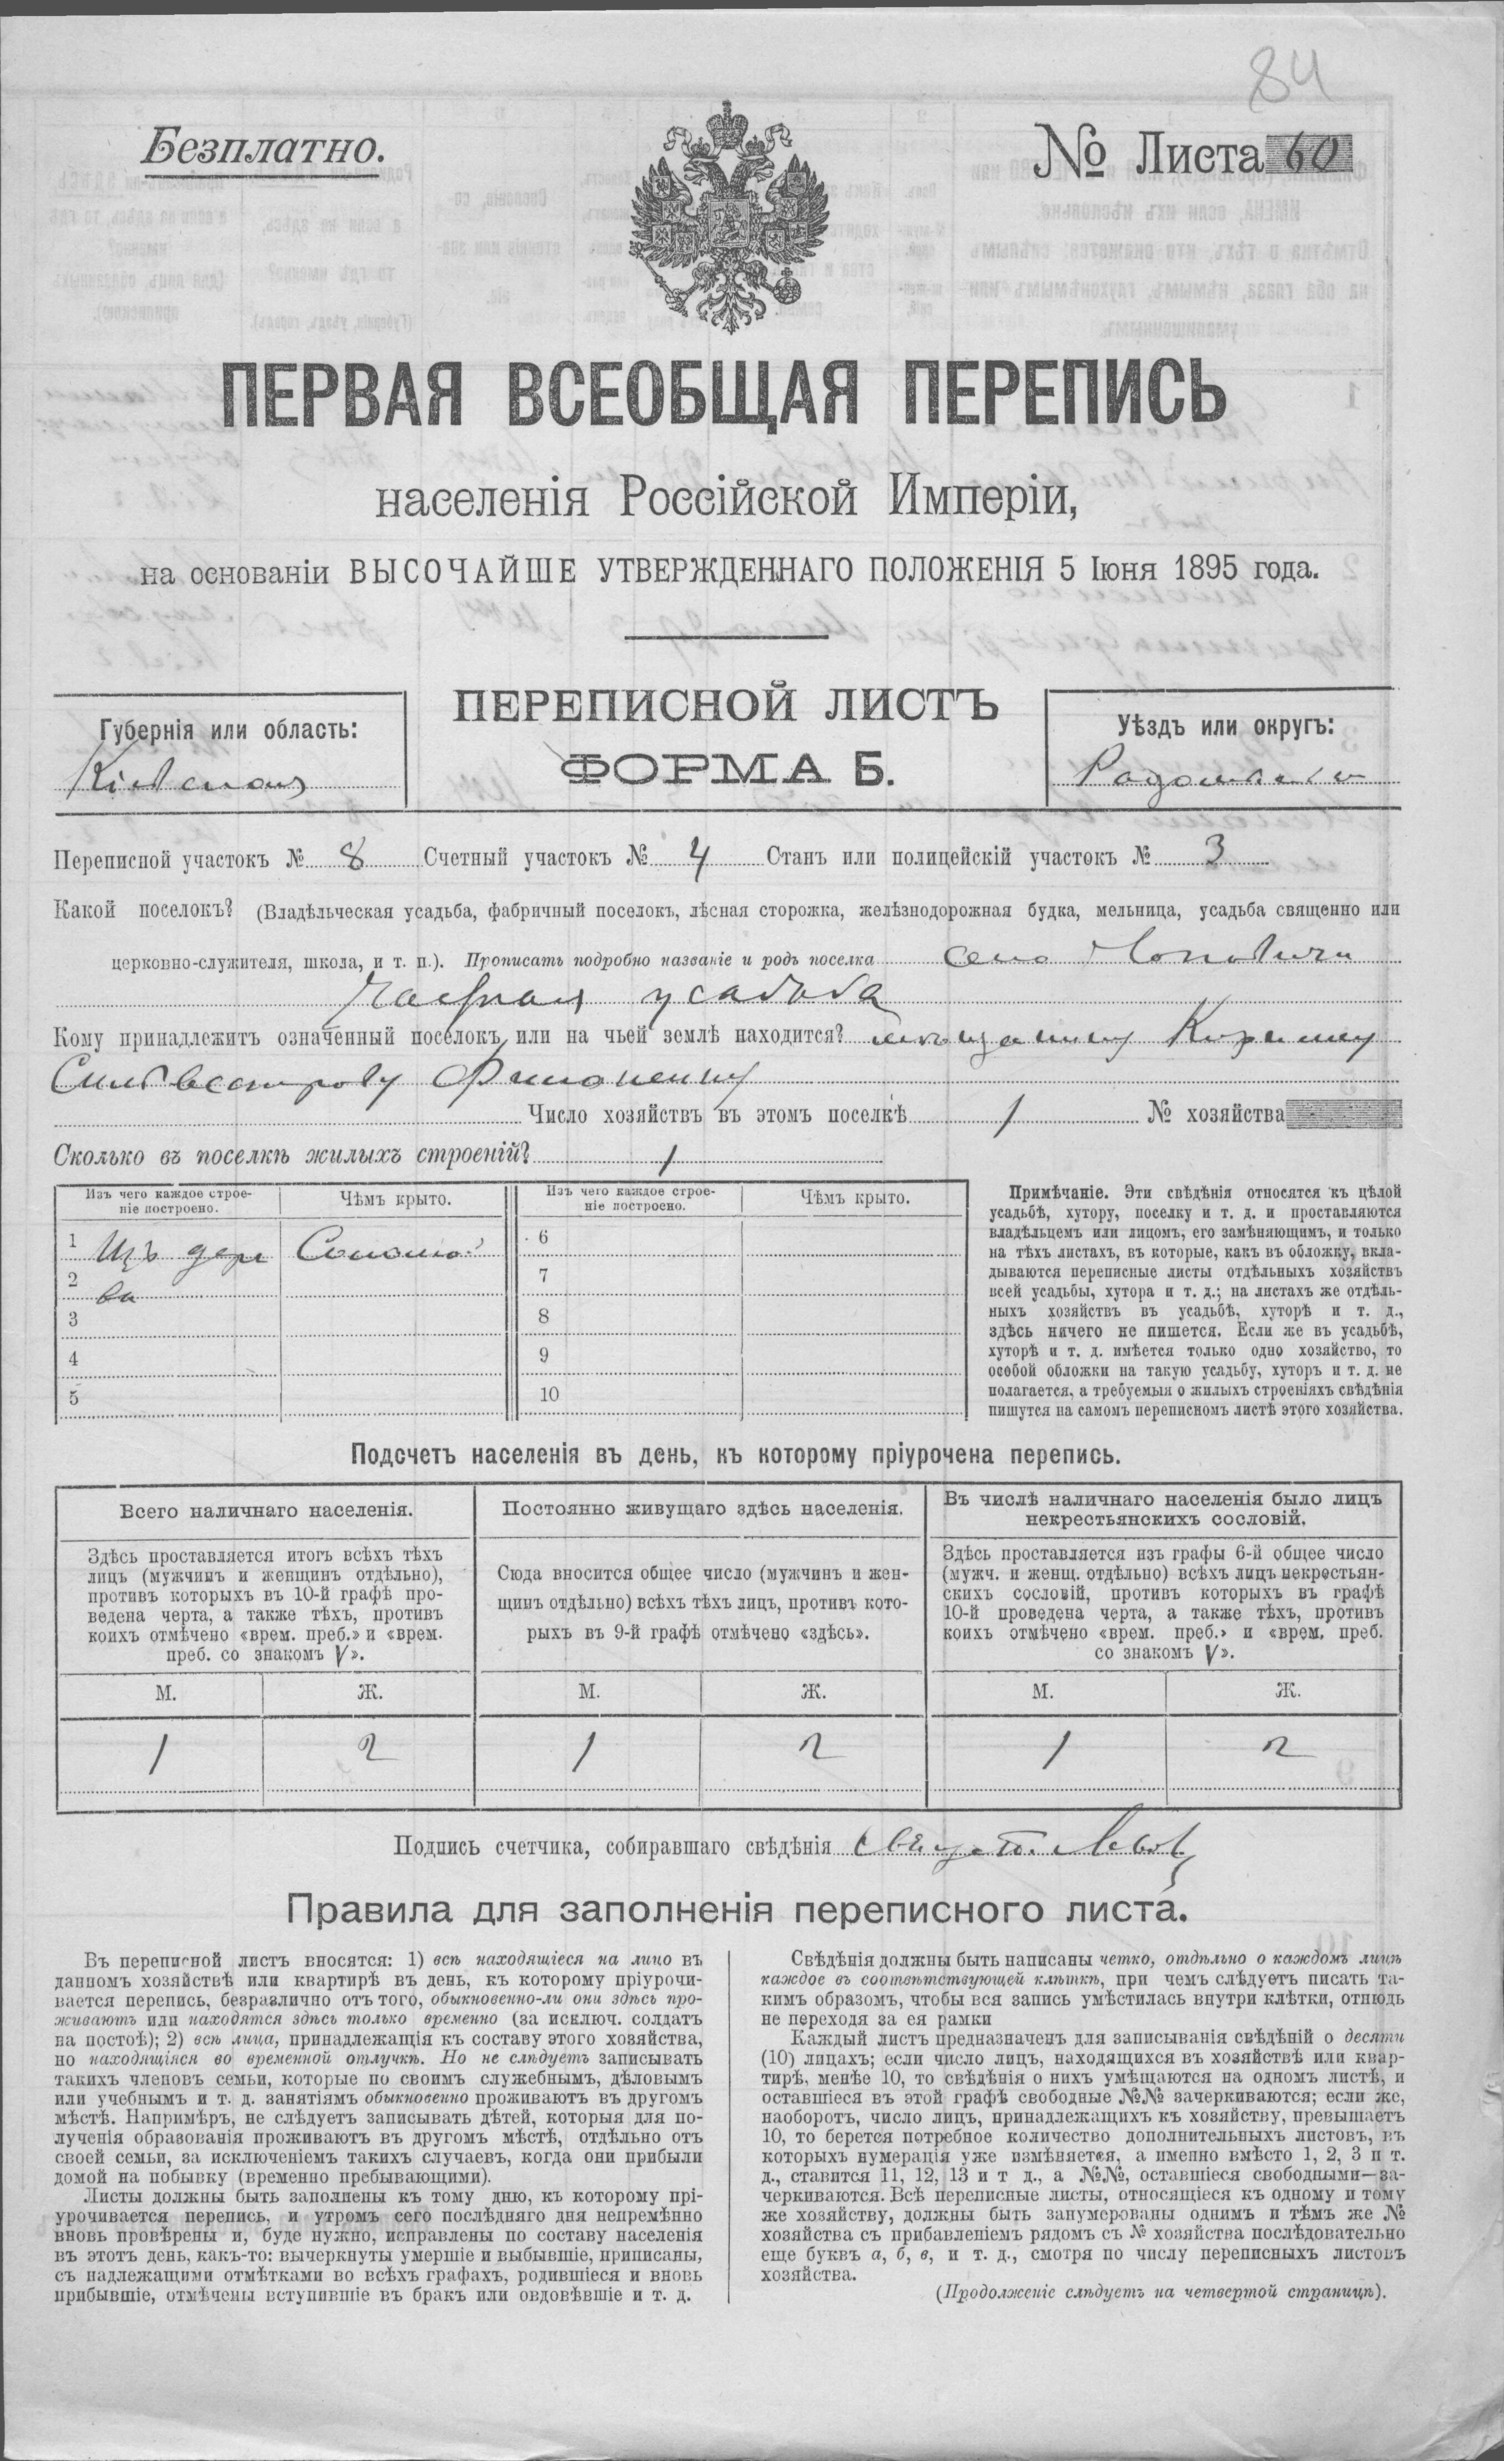 84
Безплатно.
№ Листа 60
ПЕРВАЯ ВСЕОБЩАЯ ПЕРЕПИСЬ
населенія Россійской Имперіи,
на основаніи ВЫСОЧАЙШЕ УТВЕРЖДЕННАГО ПОЛОЖЕНІЯ 5 Іюня 1895 года.
ПЕРЕПИСНОЙ ЛИСТЪ
ФОРМА Б.
Губернія или область:
Кіевская
Уѣздъ или округъ:
Переписной участокъ № 8 Счетный участокъ № 4 Станъ или полицейскій участокъ № 3
Какой поселокъ? (Владѣльческая усадьба, фабричный поселокъ, лѣсная сторожка, желѣзнодорожная будка, мельница, усадьба священно или
церковно-служителя, школа, и т. п.). Прописать подробно названіе и родъ поселка село
усадьба
Кому принадлежитъ означенный поселокъ или на чьей землѣ находится? мѣщанину
Сильвестрову
Число хозяйствъ въ этомъ поселкѣ 1 № хозяйства
Сколько въ поселкѣ жилыхъ строеній? 1
Изъ чего каждое строе-
ніе построено.
Чѣмъ крыто.
Изъ чего каждое строе-
ніе построено.
Чѣмъ крыто.
1 Изъ дере Солом
2 ва
3
4
5
6
7
8
9
10
Примѣчаніе. Эти свѣдѣнія относятся къ цѣлой
усадьбѣ, хутору, поселку и т. д. и проставляются
владѣльцемъ или лицомъ, его замѣняющимъ, и только
на тѣхъ листахъ, въ которые, какъ въ обложку, вкла-
дываются переписные листы отдѣльныхъ хозяйствъ
всей усадьбы, хутора и т. д.; на листахъ же отдѣль-
ныхъ хозяйствъ въ усадьбѣ, хуторѣ и т. д.,
здѣсь ничего не пишется. Если же въ усадьбѣ,
хуторѣ и т. д. имѣется только одно хозяйство, то
особой обложки на такую усадьбу, хуторъ и т. д. не
полагается, а требуемыя о жилыхъ строеніяхъ свѣдѣнія
пишутся на самомъ переписномъ листѣ этого хозяйства.
Подсчетъ населенія въ день, къ которому пріурочена перепись.
Всего наличнаго населенія.
Здѣсь проставляется итогъ всѣхъ тѣхъ
лицъ (мужчинъ и женщинъ отдѣльно),
противъ которыхъ въ 10-й графѣ про-
ведена черта, а также тѣхъ, противъ
коихъ отмѣчено «врем. преб.» и «врем.
преб. со знакомъ V».
Постоянно живущаго здѣсь населенія.
Сюда вносится общее число (мужчинъ и жен-
щинъ отдѣльно) всѣхъ тѣхъ лицъ, противъ кото-
рыхъ въ 9-й графѣ отмѣчено «здѣсь».
Въ числѣ наличнаго населенія было лицъ
некрестьянскихъ сословій.
Здѣсь проставляется изъ графы 6-й общее число
(мужч. и женщ. отдѣльно) всѣхъ лицъ некрестьян-
скихъ сословій, противъ которыхъ въ графѣ
10-й проведена черта, а также тѣхъ, противъ
коихъ отмѣчено «врем. преб.» и «врем. преб.
со знакомъ V».
М. Ж. М. Ж. М. Ж.
1 2 1 2 1 2
Подпись счетчика, собиравшаго свѣдѣнія
Правила для заполненія переписного листа.
Въ переписной листъ вносятся: 1) всѣ находящіеся на лицо въ
данномъ хозяйствѣ или квартирѣ въ день, къ которому пріурочи-
вается перепись, безразлично отъ того, обыкновенно-ли они здѣсь про-
живаютъ или находятся здѣсь только временно (за исключ. солдатъ
на постоѣ); 2) всѣ лица, принадлежащія къ составу этого хозяйства,
но находящіяся во временной отлучкѣ. Но не слѣдуетъ записывать
такихъ членовъ семьи, которые по своимъ служебнымъ, дѣловымъ
или учебнымъ и т. д. занятіямъ обыкновенно проживаютъ въ другомъ
мѣстѣ. Напримѣръ, не слѣдуетъ записывать дѣтей, которыя для по-
лученія образованія проживаютъ въ другомъ мѣстѣ, отдѣльно отъ
своей семьи, за исключеніемъ такихъ случаевъ, когда они прибыли
домой на побывку (временно пребывающими).
Листы должны быть заполнены къ тому дню, къ которому прі-
урочивается перепись, и утромъ сего послѣдняго дня непремѣнно
вновь провѣрены и, буде нужно, исправлены по составу населенія
въ этотъ день, какъ-то: вычеркнуты умершіе и выбывшіе, приписаны,
съ надлежащими отмѣтками во всѣхъ графахъ, родившіеся и вновь
прибывшіе, отмѣчены вступившіе въ бракъ или овдовѣвшіе и т. д.
Свѣдѣнія должны быть написаны четко, отдѣльно о каждомъ лицѣ
каждое въ соотвѣтствующей клѣткѣ, при чемъ слѣдуетъ писать та-
кимъ образомъ, чтобы вся запись умѣстилась внутри клѣтки, отнюдь
не переходя за ея рамки
Каждый листъ предназначенъ для записыванія свѣдѣній о десяти
(10) лицахъ; если число лицъ, находящихся въ хозяйствѣ или квар-
тирѣ, менѣе 10, то свѣдѣнія о нихъ умѣщаются на одномъ листѣ, и
оставшіеся въ этой графѣ свободные №№ зачеркиваются; если же,
наоборотъ, число лицъ, принадлежащихъ къ хозяйству, превышаетъ
10, то берется потребное количество дополнительныхъ листовъ, въ
которыхъ нумерація уже измѣняется, а именно вмѣсто 1, 2, 3 и т.
д., ставится 11, 12, 13 и т д., а №№, оставшіеся свободными—за-
черкиваются. Всѣ переписные листы, относящіеся къ одному и тому
же хозяйству, должны быть занумерованы однимъ и тѣмъ же №
хозяйства съ прибавленіемъ рядомъ съ № хозяйства послѣдовательно
еще буквъ а, б, в, и т. д., смотря по числу переписныхъ листовъ
хозяйства.
(Продолженіе слѣдуетъ на четвертой страницѣ).